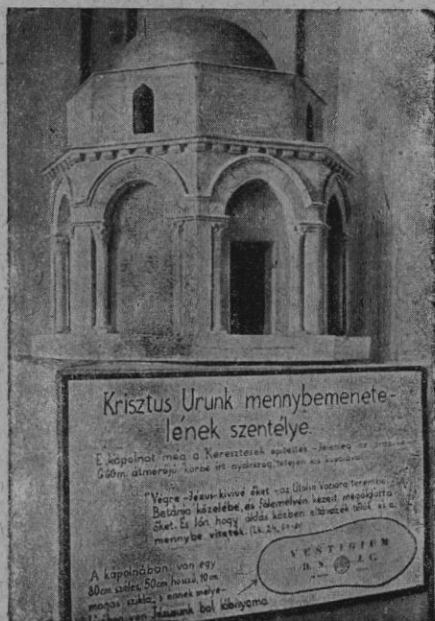 Krisztus Urunk mennybemenete-
lének szentélye.
E kápolnát még a Keresztesek építették - Jelenleg az
6.60m. átmérőjű körbe írt nyolcszög, tetején kis kupolával.
"Végre - Jézus kivivé őket - az Utolsó Vacsora terméből
Betánia közelébe, és fölemelvén kezeit megáldotta
őket. És lőn, hogy áldás közben eltávozék tőlük és a
mennybe viteték. (Lk. 24,
A kápolnában van egy
80cm széles, 50cm hosszú, 10cm
magas szikla, s ennek mélye-
van Jézusunk bal lábnyoma
VESTIGIUM
D. N. J. C.